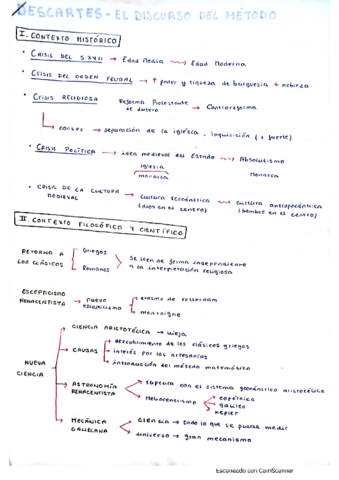 DESCARTES - EL DISCURSO DEL MÉTODO
I. CONTEXTO HISTÓRICO
• CRISIS DEL S XVII → Edad Media → Edad Moderna
• CRISIS DEL ORDEN FEUDAL → ↑ poder y riqueza de burguesía ↓ nobleza
• CRISIS RELIGIOSA Reforma Protestante de Lutero → Contrarreforma
consec → separación de la iglesia. Inquisición (+ fuerte)
• CRISIS POLÍTICA → idea medieval del Estado → Absolutismo
Iglesia
monarca
Monarca
• CRISIS DE LA CULTURA MEDIEVAL → Cultura teocéntrica (dios en el centro) → cultura antropocéntrica (hombre en el centro)
II. CONTEXTO FILOSÓFICO Y CIENTÍFICO
RETORNO A LOS CLÁSICOS
Griegos
Romanos
Se leen de forma independiente a la interpretación religiosa
ESCEPTICISMO RENACENTISTA → nuevo escepticismo
erasmo de rotterdam
montaigne
NUEVA CIENCIA
CIENCIA ARISTOTÉLICA → vieja
CAUSAS
descubrimiento de los clásicos griegos
interés por las artesanías
introducción del método matemático
ASTRONOMÍA RENACENTISTA
ruptura con el sistema geocéntrico aristotélico
Heliocentrismo
copérnico
galileo
kepler
MECÁNICA GALILEANA
Ciencia → todo lo que se puede medir
universo → gran mecanismo
Escaneado con CamScanner